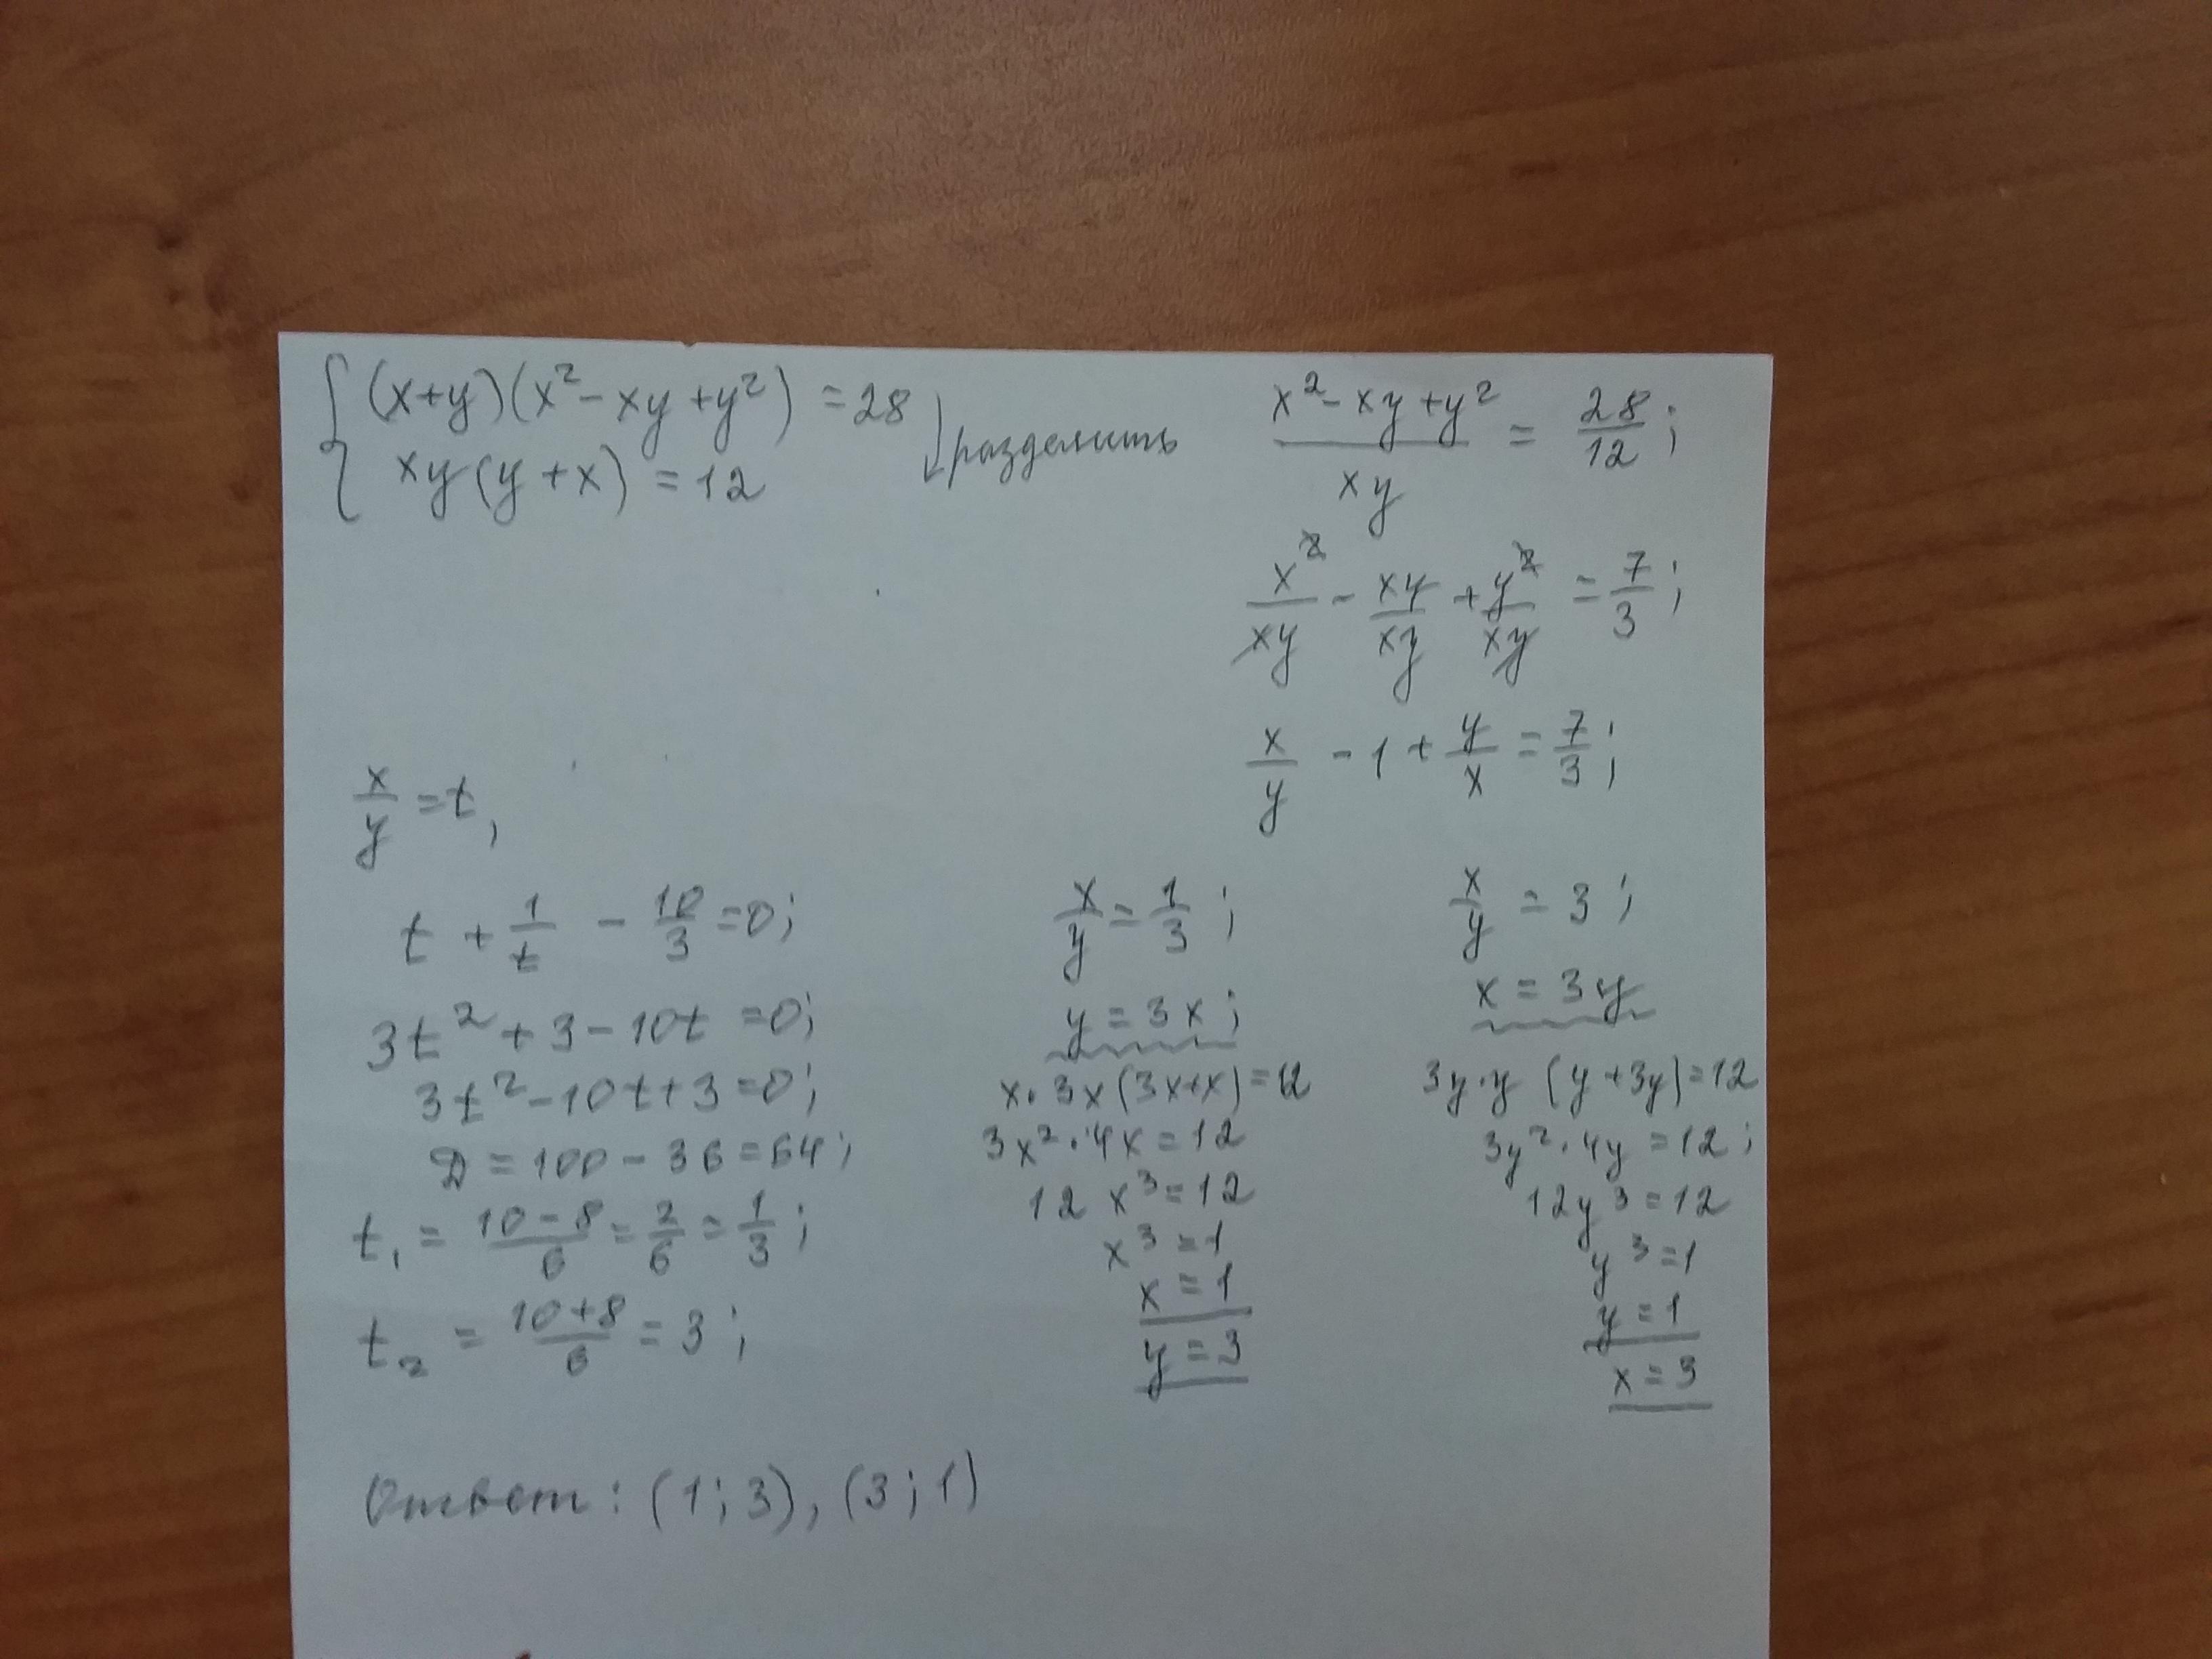 { (x+y)(x² - xy + y²) = 28
xy(y+x) = 12
↓ разделить
(x² - xy + y²)/(xy) = 28/12;
x²/(xy) - xy/(xy) + y²/(xy) = 7/3;
x/y - 1 + y/x = 7/3;
x/y = t,
t + 1/t - 10/3 = 0;
3t² + 3 - 10t = 0;
3t² - 10t + 3 = 0;
D = 100 - 36 = 64;
t₁ = (10-8)/6 = 2/6 = 1/3;
t₂ = (10+8)/6 = 3;
x/y = 1/3;
y = 3x;
x·3x(3x+x) = 12
3x²·4x = 12
12x³ = 12
x³ = 1
x = 1
y = 3
x/y = 3;
x = 3y
3y·y (y+3y) = 12
3y²·4y = 12;
12y³ = 12
y³ = 1
y = 1
x = 3
Ответ: (1; 3), (3; 1)